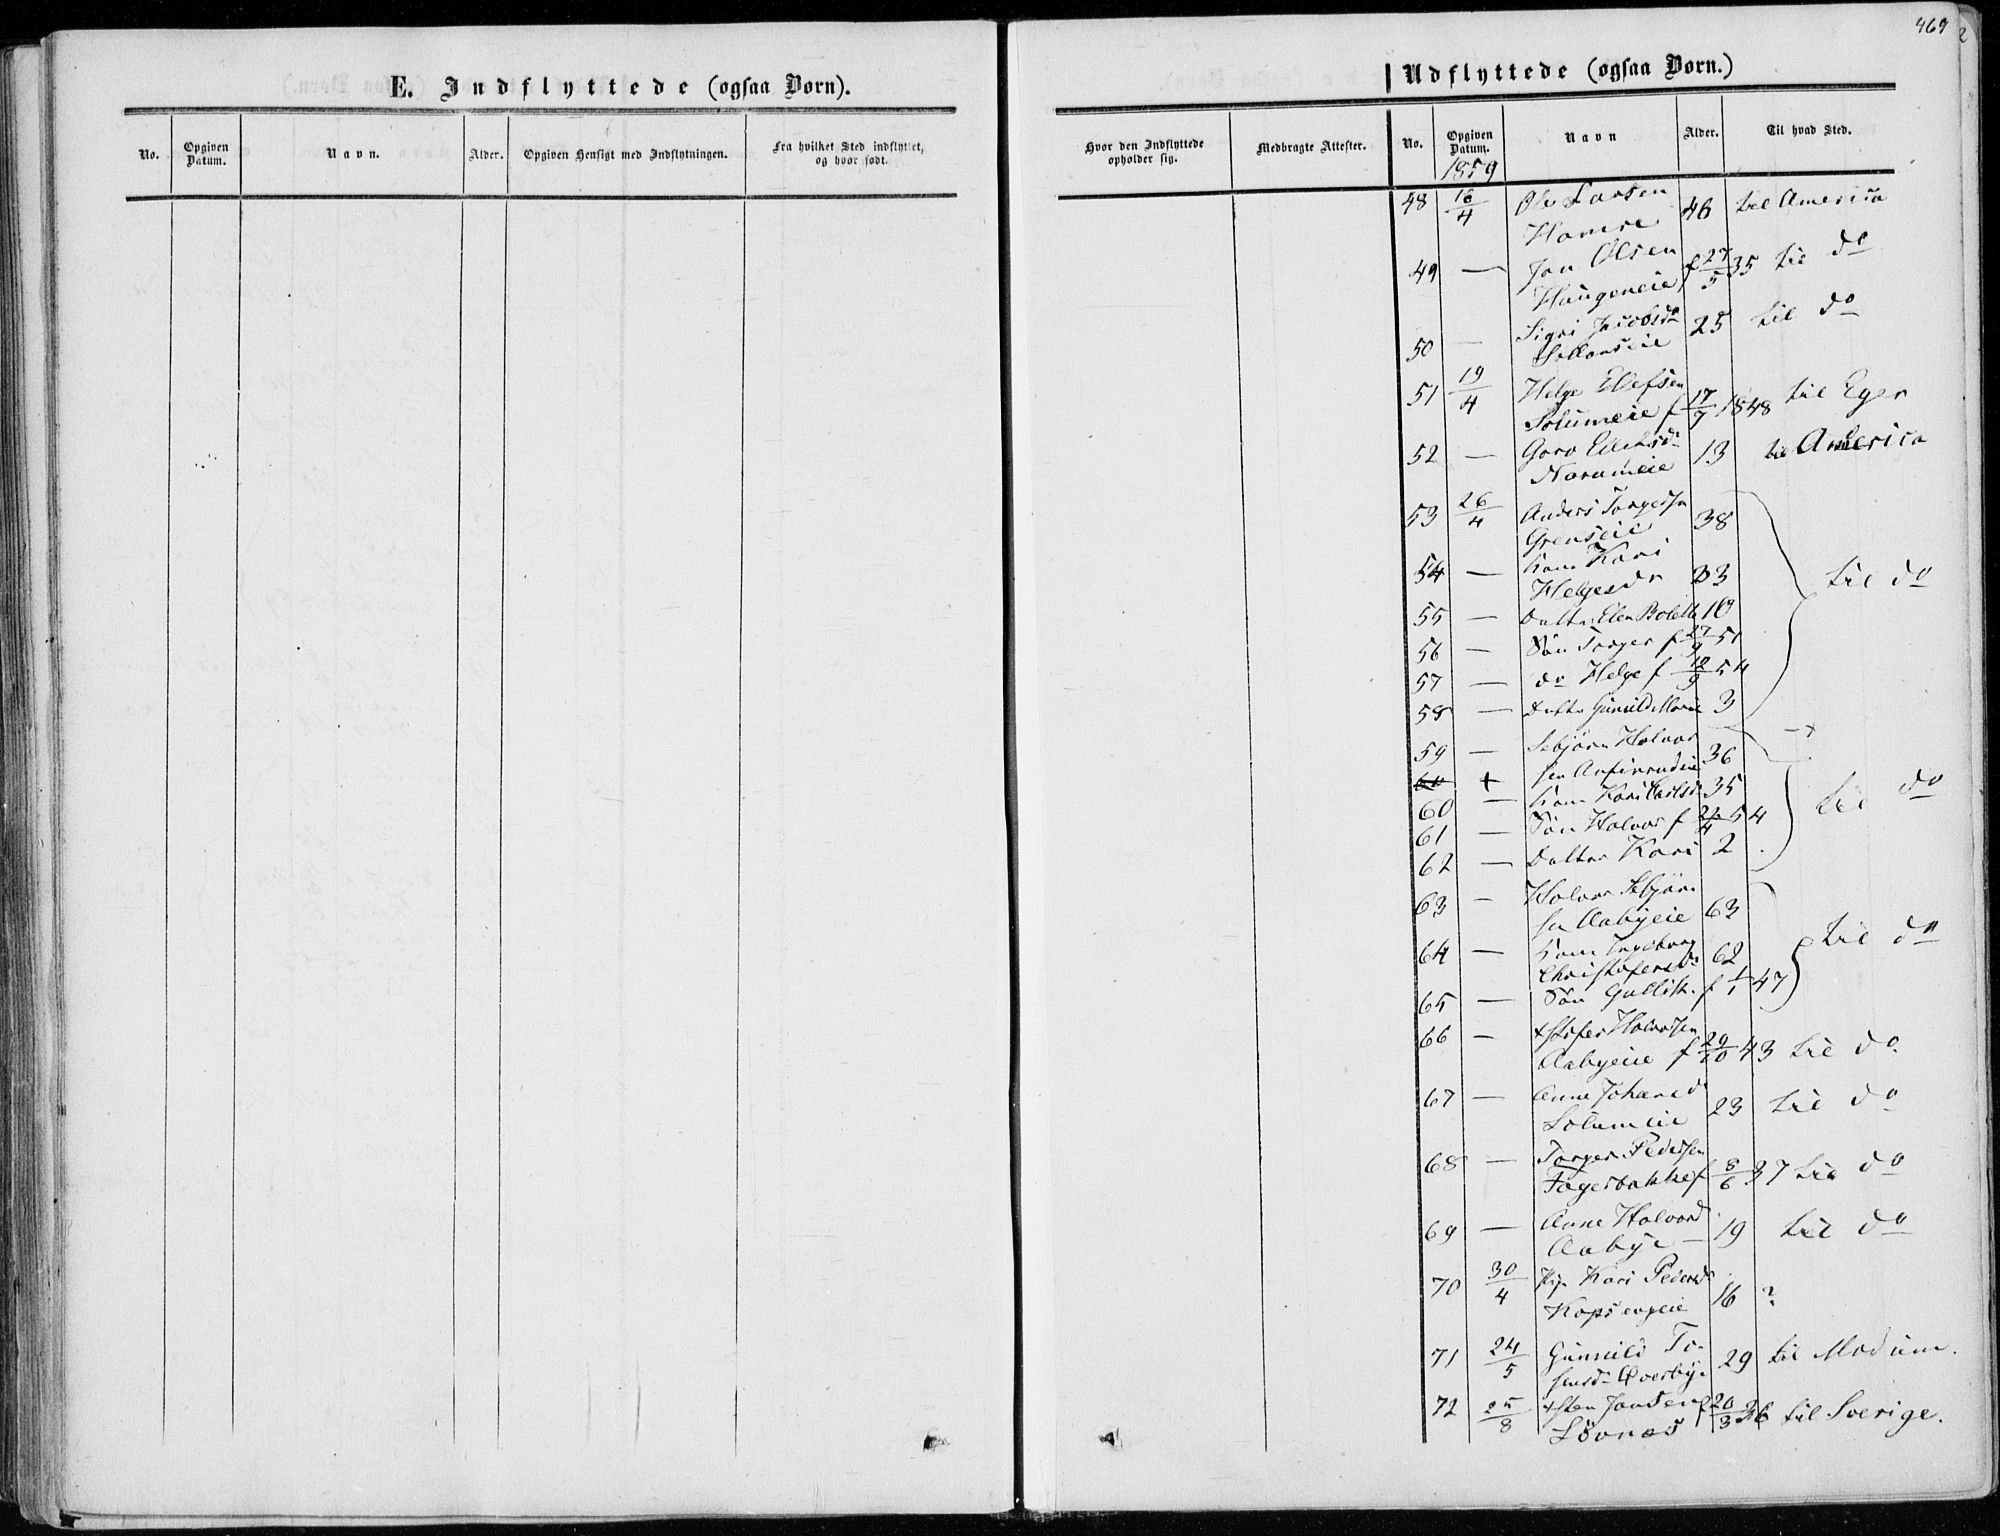 469
E. Indflyttede (ogsaa Børn).
No.
Opgiven Datum.
Navn.
Alder.
Opgiven Hensigt med Indflytningen.
Fra hvilket Sted indflyttet, og hvor født.
Udflyttede (ogsaa Børn.)
Hvor den Indflyttede opholder sig.
Medbragte Attester.
No.
Opgiven Datum.
Navn
Alder.
Til hvad Sted.
1859
48 16/4 Ole Larsen 46 til America
Hamre
49 — Jan Olsen f 27/5 35 til do
Haugeneie
50 — Sigri Jacobsdr 25 til do
51 19/4 Helge Ellefsen
Solumeie f 17/7 1848 til Eger
52 — Goro 13 til America
Norumeie
53 26/4 Anders Torgersen 38
Grenseie
54 — Kone Kari 33 til do
Helgesdr
55 — Datter Elen Bolette 10
56 — Søn Torger f 27/9 51
57 — do Helge f 12/9 54
58 — Datter Gunild Marie 3
59 — Sebjørn Halvor 36
sen Anfinrudeie
60 — Kone Kari 35 til do
61 — Søn Halvor f 24/4 54
62 — Datter Kari 2
63 — Halvor Sebjørn
sen Aabyeie 63
64 — Kone Ingeborg 62 til do
Christofersdr
65 — Søn Gullik f 1/1 47
66 — +stofer Halvorsen
Aabyeie f 29/10 43 til do
67 — Anne Johansd 23 til do
Solumeie
68 — Torger Pedersen
Fagerbakke f 8/6 37 til do
69 — Anne Halvord 19 til do
Aabye
70 30/4 Pige Kari Pedersdr 16 ?
Kopsengeie
71 24/5 Gunild To- 29 til Modum.
sensdr Overby
72 25/8 +sten Jansen f 20/3 36 til Sverige.
Løvnes